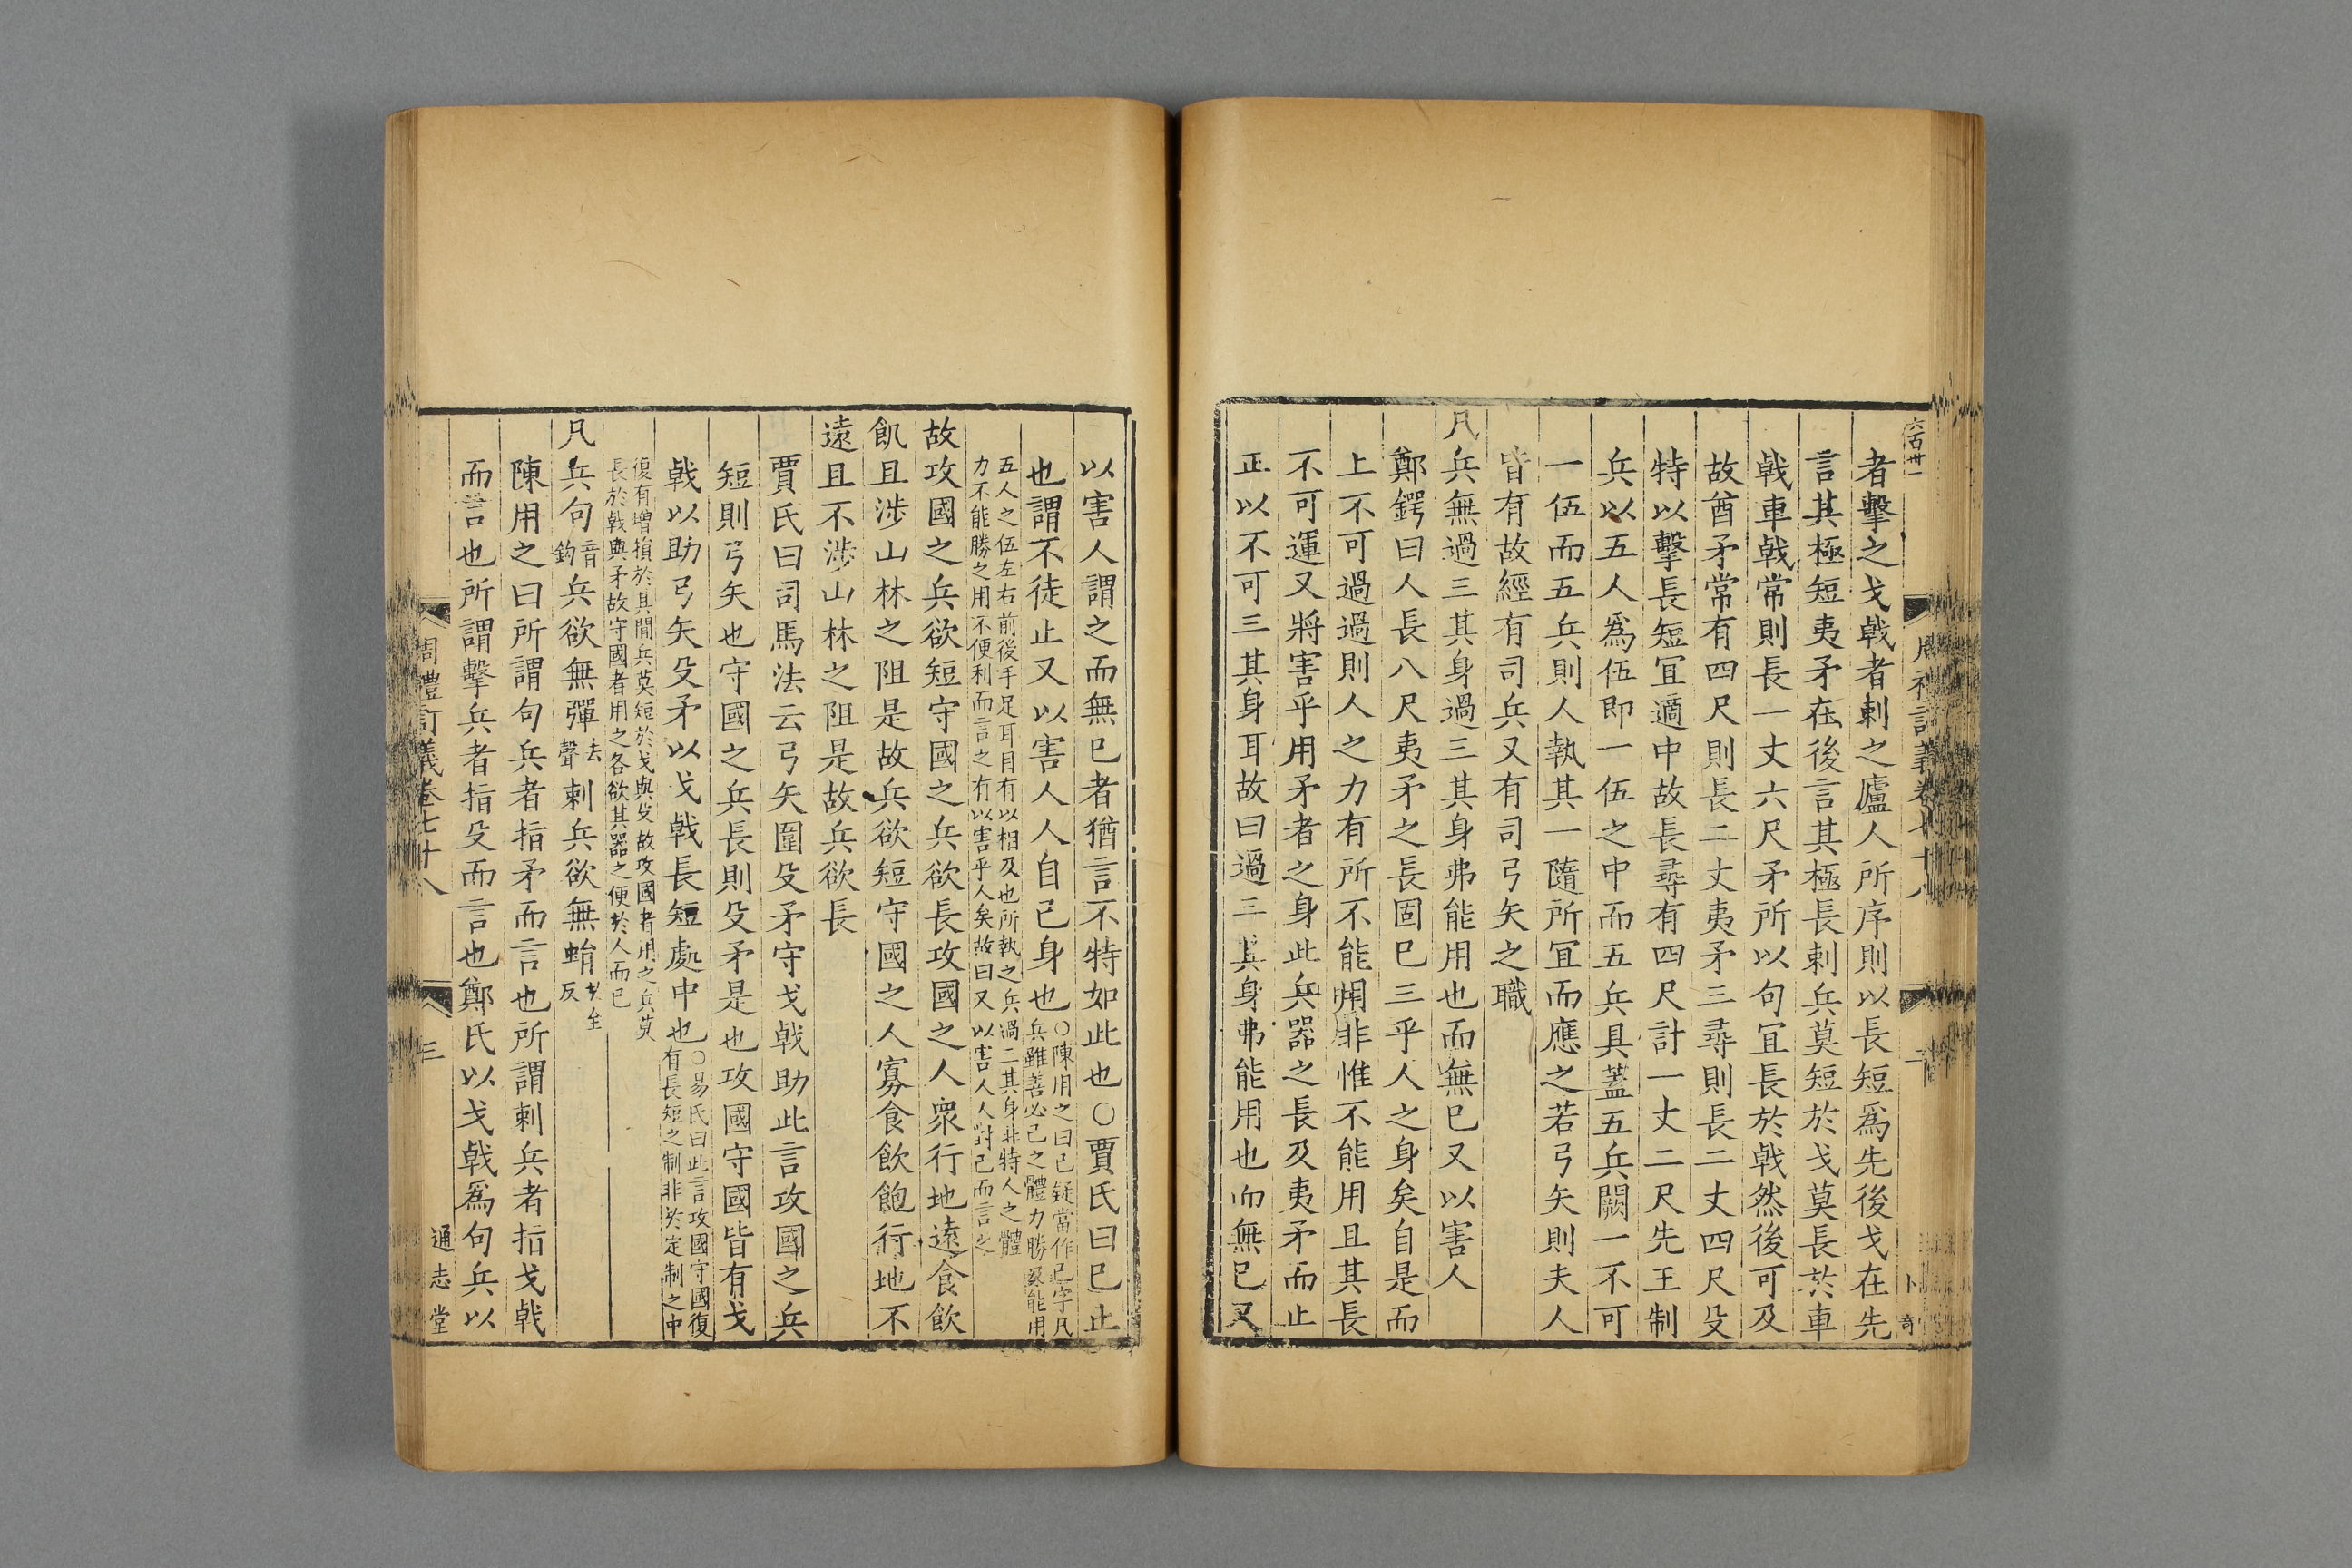 六百卅一
者擊之戈戟者刺之廬人所序則以長短爲先後戈在先
言其極短夷矛在後言其極長刺兵莫短於戈莫長於車
戟車戟常則長一丈六尺矛所以句冝長於戟然後可及
故酋矛常有四尺則長二丈夷矛三尋則長二丈四尺殳
特以擊長短冝適中故長尋有四尺計一丈二尺先王制
兵以五人爲伍即一伍之中而五兵具蓋五兵闕一不可
一伍而五兵則人執其一隨所冝而應之若弓矢則夫人
皆有故經有司兵又有司弓矢之職
凡兵無過三其身過三其身弗能用也而無已又以害人
鄭鍔曰人長八尺夷矛之長固已三乎人之身矣自是而
上不可過過則人之力有所不能用非惟不能用且其長
不可運又將害乎用矛者之身此兵器之長及夷矛而止
正以不可三其身耳故曰過三其身弗能用也而無已又
周禮訂義卷七十八
二
以害人謂之而無已者猶言不特如此也○賈氏曰已止
也謂不徒止又以害人人自己身也○陳用之曰已疑當作己字凡
兵雖善必己之體力勝兵能用
五人之伍左右前後手足耳目有以相及也所執之兵過三其身非特人之體
力不能勝之用不便利而言之有以害乎人矣故曰又以害人人對己而言之
故攻國之兵欲短守國之兵欲長攻國之人衆行地遠食飲
飢且涉山林之阻是故兵欲短守國之人寡食飲飽行地不
遠且不涉山林之阻是故兵欲長
賈氏曰司馬法云弓矢圍殳矛守戈戟助此言攻國之兵
短則弓矢也守國之兵長則殳矛是也攻國守國皆有戈
戟以助弓矢殳矛以戈戟長短處中也○易氏曰此言攻國守國復
有長短之制非於定制之中
復有增損於其閒兵莫短於戈與殳故攻國者用之兵莫
長於戟與矛故守國者用之各欲其器之便於人而已
凡兵句音
鉤兵欲無彈去
聲刺兵欲無蜎於全
反
陳用之曰所謂句兵者指矛而言也所謂刺兵者指戈戟
而言也所謂擊兵者指殳而言也鄭氏以戈戟爲句兵以
周禮訂義卷七十八
三
通志堂